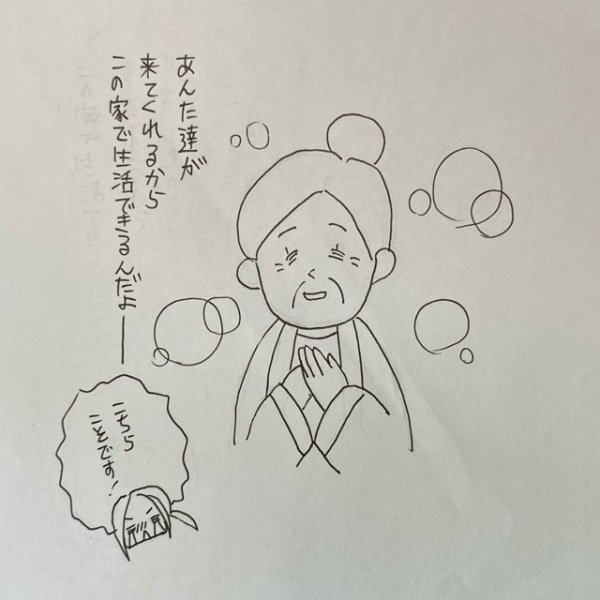 あんた達が
来てくれるから
この家で生活できるんだよー
こちら
ことです!